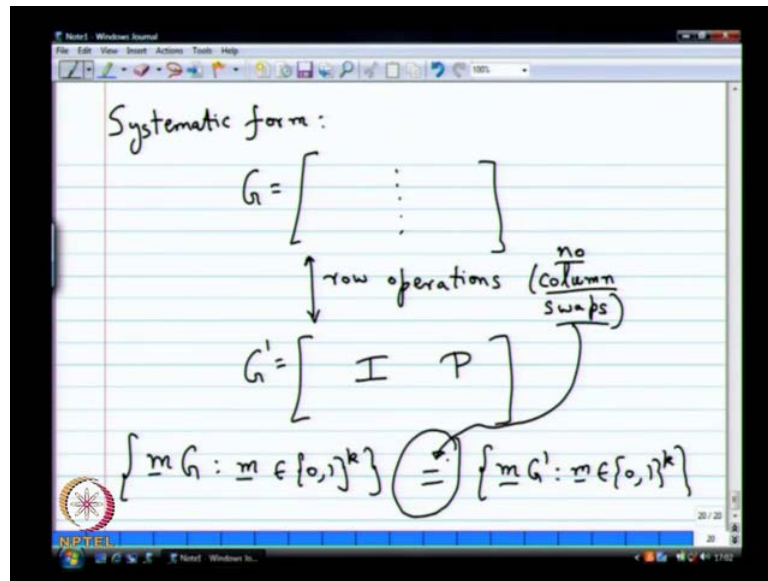 Note1 - Windows Journal
File Edit View Insert Actions Tools Help
100%
Systematic form:
G = [ ⋮ ]
row operations (no column swaps)
G' = [ I P ]
{ m G : m ∈ {0,1}^k } = { m G' : m ∈ {0,1}^k }
20 / 20
20
NPTEL
Note1 - Windows Jo...
17:02